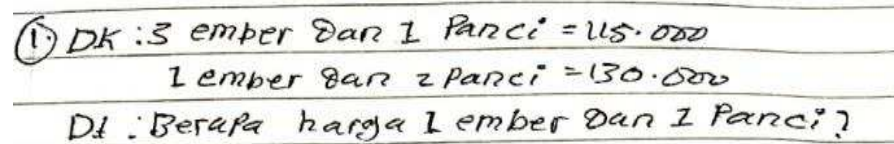 ① DK : 3 ember dan 1 Panci = 115.000
1 ember dan 2 Panci = 130.000
Dt : Berapa harga 1 ember dan 1 Panci?